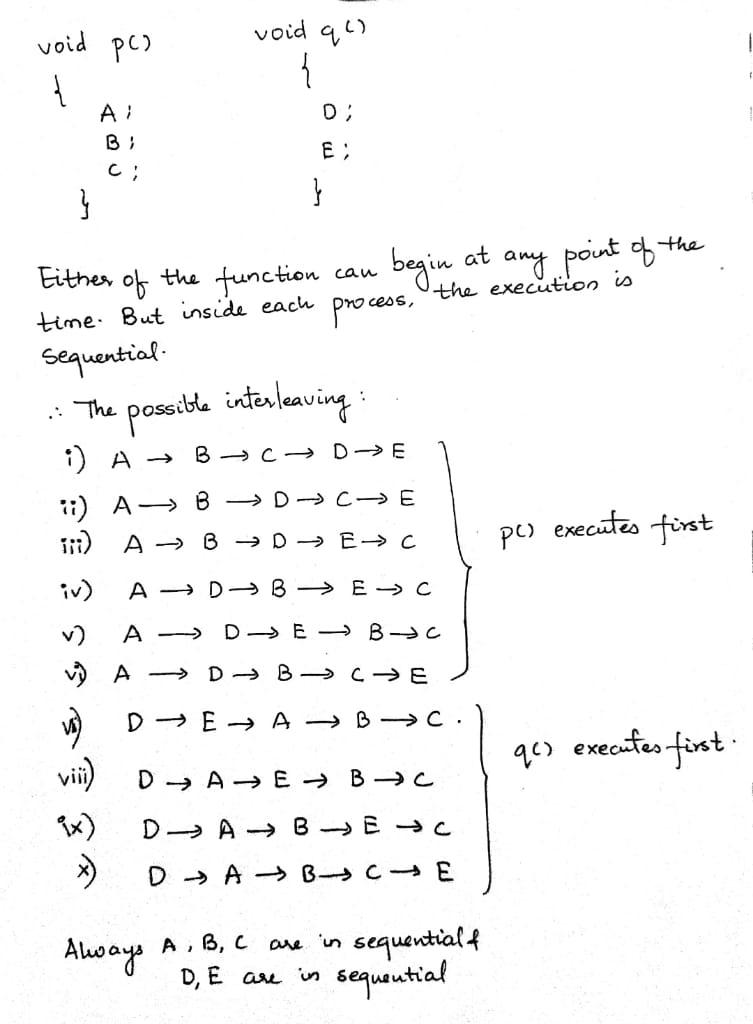 void p()    void q()
{    {
A;    D;
B;    E;
C;
}    }
Either of the function can begin at any point of the
time. But inside each process, the execution is
Sequential.
∴ The possible interleaving :
i) A → B → C → D → E
ii) A → B → D → C → E
iii) A → B → D → E → C
p() executes first
iv) A → D → B → E → C
v) A → D → E → B → C
vi) A → D → B → C → E
vii) D → E → A → B → C .
q() executes first.
viii) D → A → E → B → C
ix) D → A → B → E → C
x) D → A → B → C → E
Always A, B, C are in sequential &
D, E are in sequential